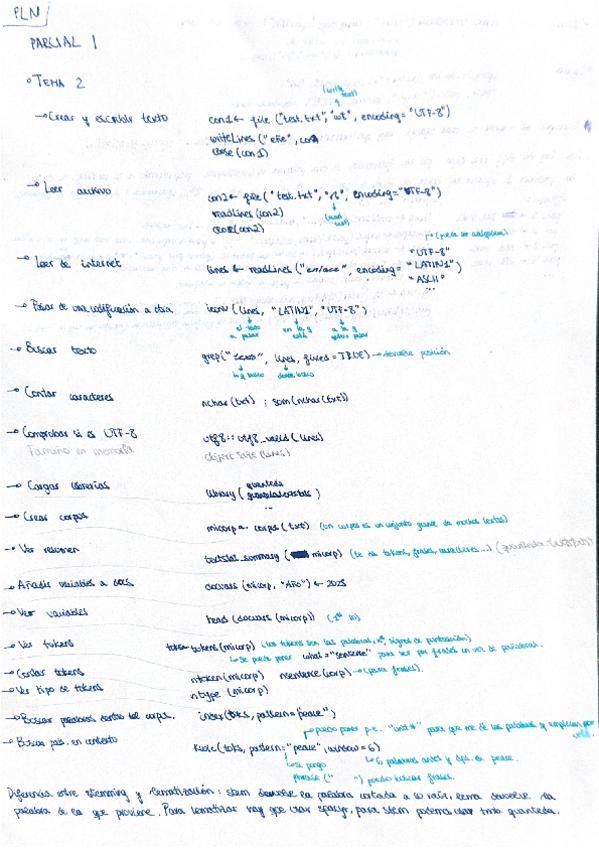 PLN
PARCIAL 1
° TEMA 2
(write text)
→ Crear y escribir texto con1 ← file ("test.txt", "wt", encoding = "UTF-8")
writeLines ("eñe", con1)
close (con1)
→ Leer archivo con2 ← file ("test.txt", "rt", encoding = "UTF-8")
readLines (con2) (read text)
close (con2)
(puede ser cualquiera)
→ Leer de internet lines ← readLines ("enlace", encoding = "UTF-8" "LATIN1" "ASCII" ...)
→ Pasar de una codificación a otra iconv (lines, "LATIN1", "UTF-8")
el texto a pasar en la q está a la q quiero pasar
→ Buscar texto grep ("texto", lines, fixed = TRUE) → devuelve posición
lo q busco donde busco
→ Contar caracteres nchar (txt) ; sum (nchar (txt))
→ Comprobar si es UTF-8 utf8 :: utf8_valid (lines)
Tamaño en memoria object.size (lines)
→ Cargar librerías library (quanteda quanteda.textstats ...)
→ Crear corpus micorp ← corpus (txt) (un corpus es un conjunto grande de muchos textos)
→ Ver resumen textstat_summary (micorp) (te da tokens, frases, caracteres...) (quanteda.textstats)
→ Añadir variables a docs. docvars (micorp, "Año") ← 2025
→ Ver variables head (docvars (micorp))
→ Ver tokens toks ← tokens (micorp) (los tokens son las palabras, nº, signos de puntuación)
→ Se puede poner what = "sentence" para ver por frases en vez de palabras.
→ Contar tokens ntoken (micorp) nsentence (corp) → (para frases).
→ Ver tipo de tokens ntype (micorp)
→ Buscar palabras dentro del corpus. index (toks, pattern = "peace")
→ puedo poner p.e. "unit*" para que me dé las palabras q empiecen por unit
→ Buscar pals. en contexto kwic (toks, pattern = "peace", window = 6)
→ si pongo → 6 palabras antes y dps. de peace.
phrase (" ") puedo buscar frases.
Diferencia entre stemming y lematización: stem devuelve la palabra cortada a su raíz, lema devuelve la
palabra de la que proviene. Para lematizar hay que usar spacyr, para stem podemos usar tmb quanteda.